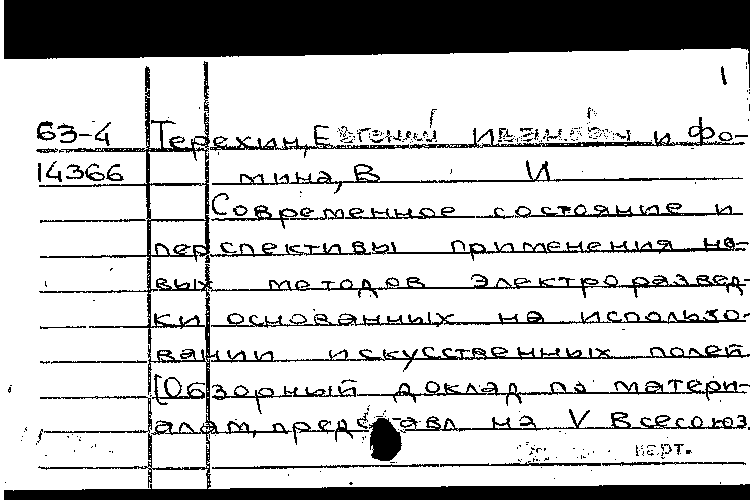 1
63-4 Терехин, Евгений Иванович и Фо-
14366 мина, В И
Современное состояние и
перспективы применения но-
вых методов электроразвед-
ки основанных на использо-
вании искусственных полей
[Обзорный доклад по матери-
алам, представл на V Всесоюз.
черт.